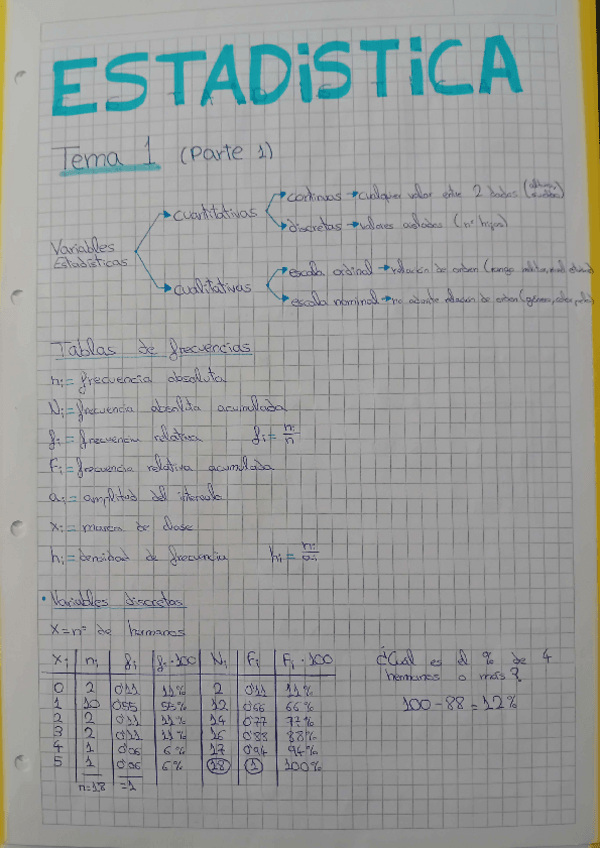 ESTADiSTiCA
Tema 1 (Parte 1)
Variables Estadísticas
cuantitativas
continuas → cualquier valor entre 2 dados (altura,
discretas → valores aislados (nº hijos)
cualitativas
escala ordinal → relación de orden (rango militar, nivel
escala nominal → no admite relación de orden (género, color, 
Tablas de frecuencias
ni = frecuencia absoluta
Ni = frecuencia absoluta acumulada
fi = frecuencia relativa fi = ni/n
Fi = frecuencia relativa acumulada
ai = amplitud del intervalo
xi = marca de clase
hi = densidad de frecuencia hi = ni/ai
• Variables discretas
X = nº de hermanos
xi ni fi fi·100 Ni Fi Fi·100
0 2 0'11 11% 2 0'11 11%
1 10 0'55 55% 12 0'66 66%
2 2 0'11 11% 14 0'77 77%
3 2 0'11 11% 16 0'88 88%
4 1 0'06 6% 17 0'94 94%
5 1 0'06 6% 18 1 100%
n=18 =1
¿Cuál es el % de 4
hermanos o más?
100-88 = 12%